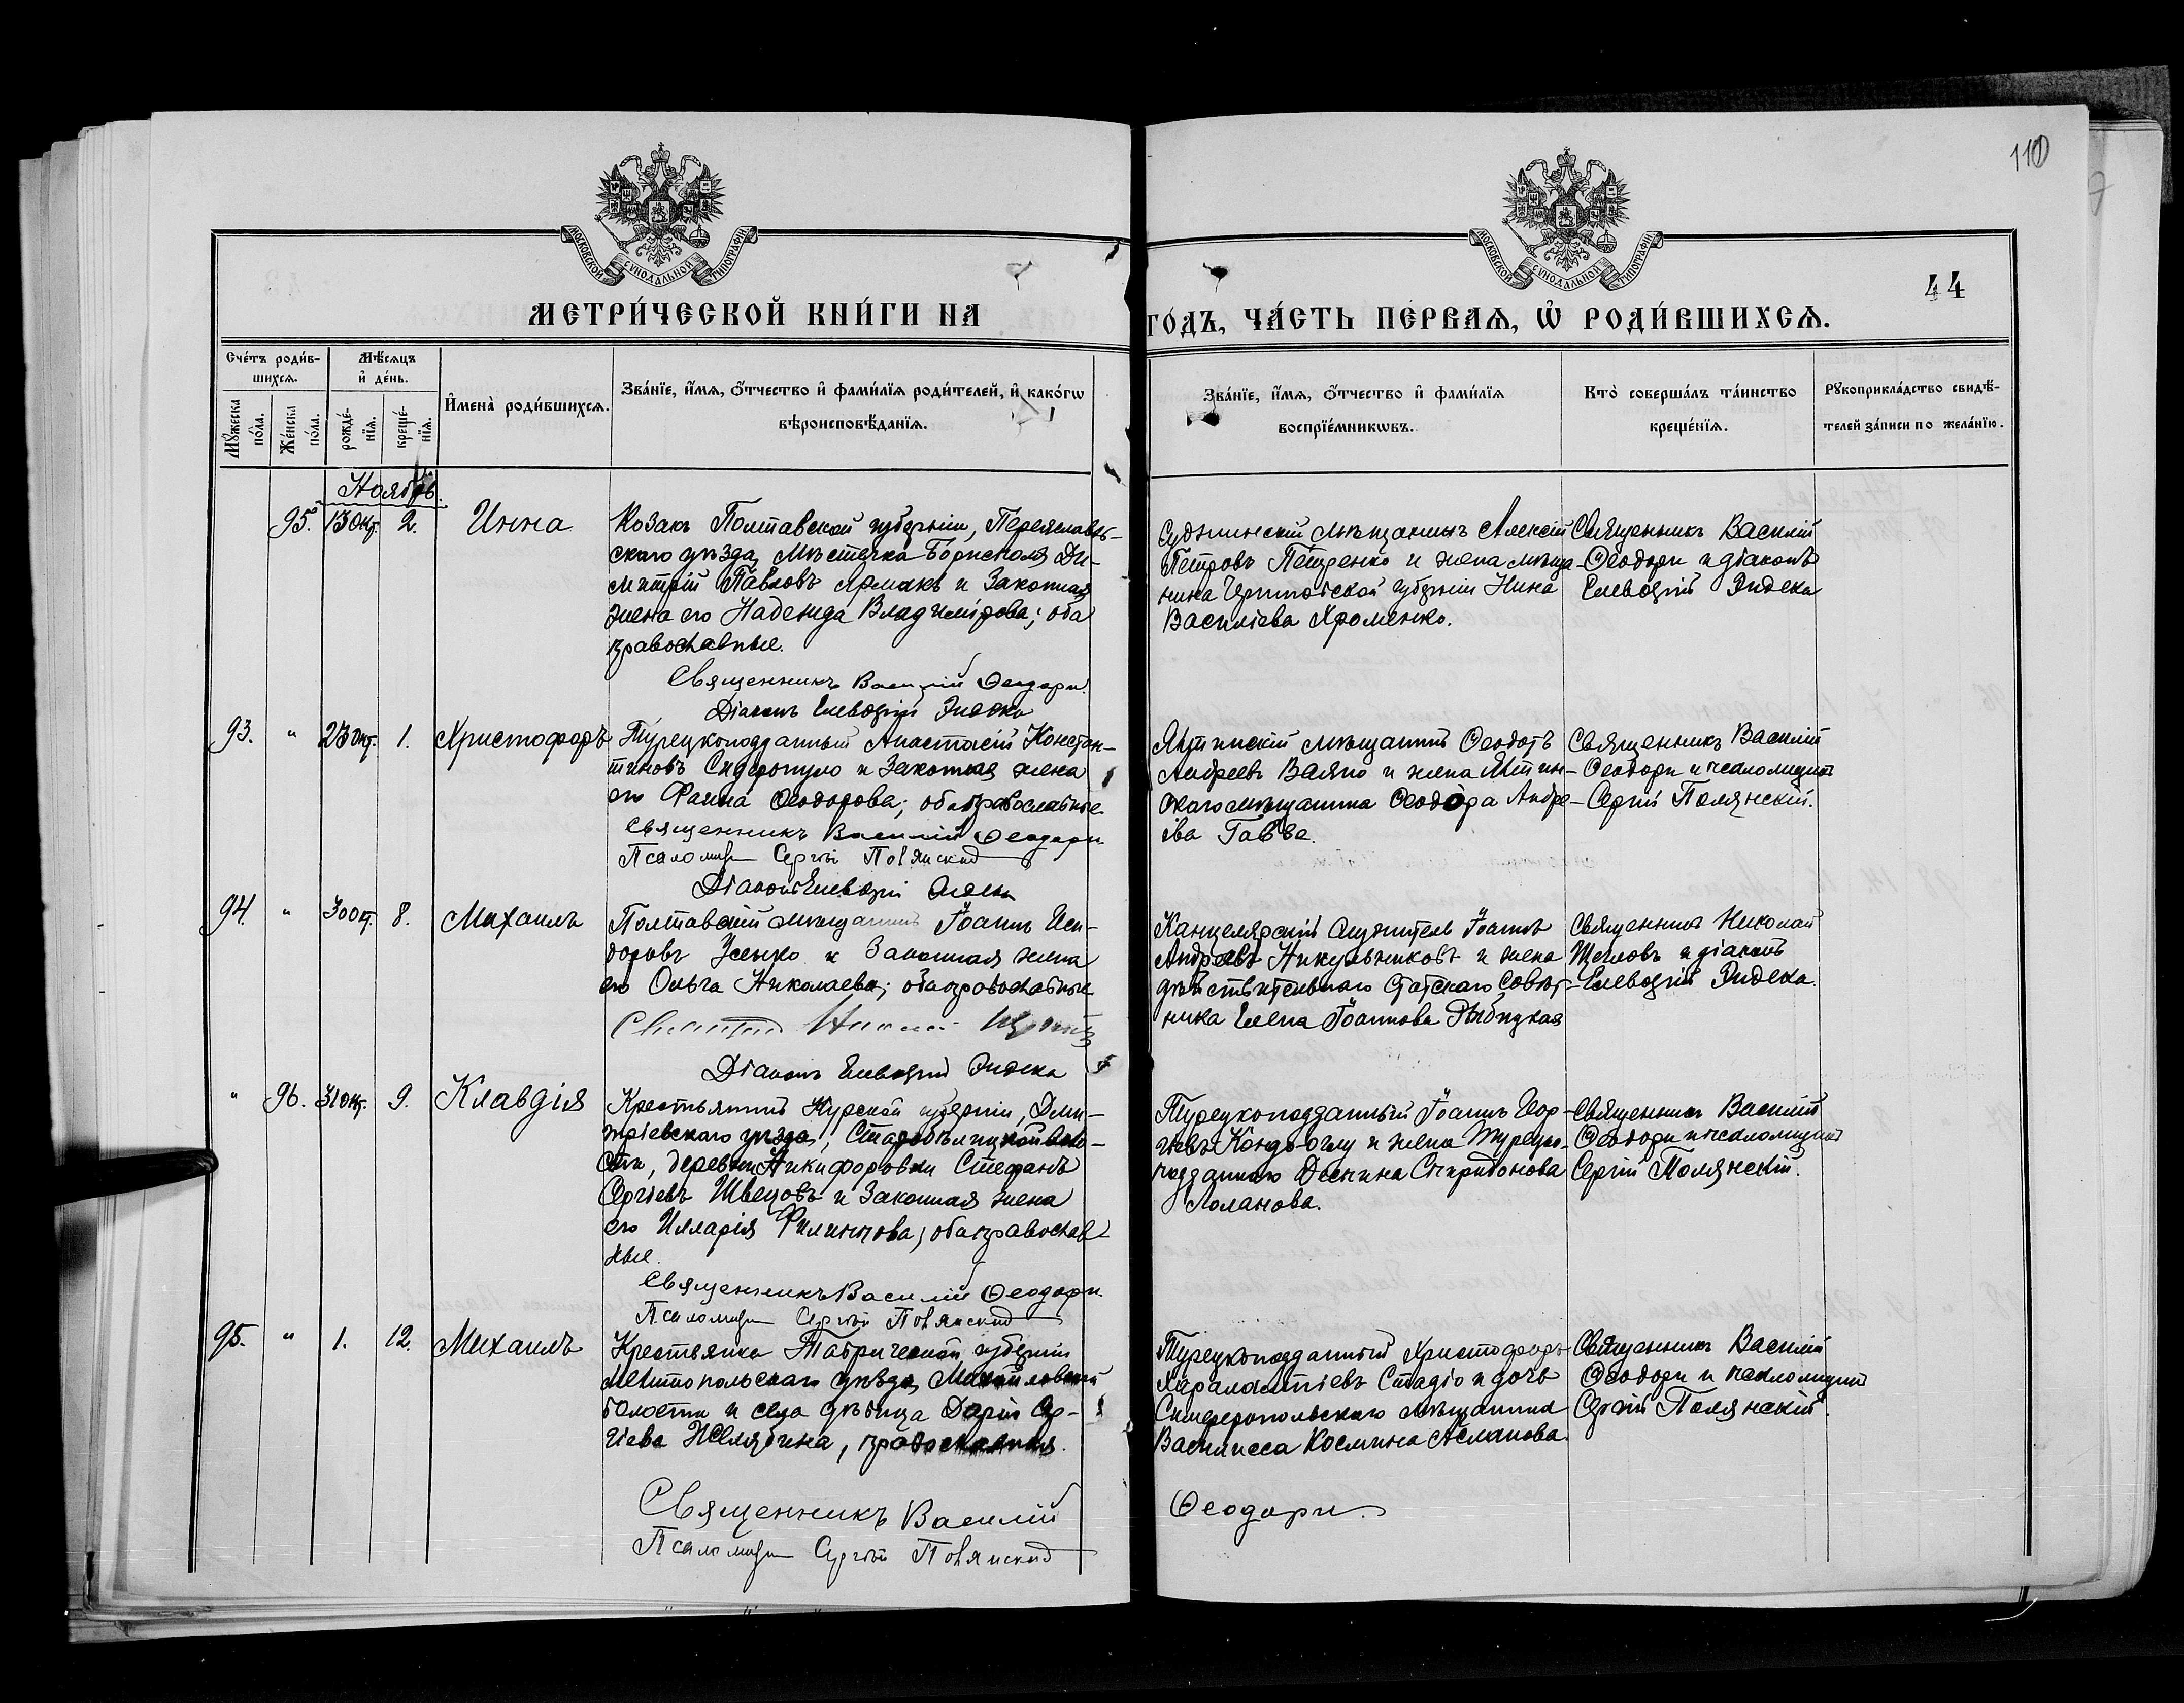 110
МОСКОВСКОЙ СѴНОДАЛЬНОЙ ТИПОГРАФІИ
МОСКОВСКОЙ СѴНОДАЛЬНОЙ ТИПОГРАФІИ
44
МЕТРИ́ЧЕСКОЙ КНИ́ГИ НА
ГО́ДЪ, ЧА́СТЬ ПЕ́РВАѦ, Ѡ҆ РОДИ́ВШИХСѦ.
Сче́тъ роди́в-
шихсѧ.
Мꙋ́жеска по́ла.
Же́нска по́ла.
Мѣ́сѧцъ
и҆ де́нь.
рожде́-
нїѧ.
креще́-
нїѧ.
И҆мена̀ роди́вшихсѧ.
Зва́нїе, и҆́мѧ, ѻ҆́тчество и҆ фами́лїѧ роди́телей, и҆ како́гѡ
вѣроисповѣ́данїѧ.
Зва́нїе, и҆́мѧ, ѻ҆́тчество и҆ фами́лїѧ
воспрїе́мникѡвъ.
Кто̀ соверша́лъ та́инство
креще́нїѧ.
Рꙋкоприкла́дство свидѣ́-
телей за́писи по жела́нїю.
Ноябрь.
95. 13 Окт. 2. Инна
Козакъ Полтавской губерніи, Переяслав-
скаго уѣзда, мѣстечка Борисполя Ди-
митрій Павловъ Ярмакъ и законная
жена его Надежда Владимірова; оба
православные.
Священникъ Василій Ѳеодори.
Діаконъ Елевѳерій Эндека
Суджинскій мѣщанинъ Алексій
Петровъ Петренко и жена мѣща-
нина Черниговской губерніи Нина
Василіева Хроменко.
Священникъ Василій
Ѳеодори и діаконъ
Елевѳерій Эндека
93. " 23 Окт. 1. Христофоръ
Турецкоподданный Анастасій Констан-
тиновъ Сидеропуло и законная жена
его Фаина Ѳеодорова; оба православные
Священникъ Василій Ѳеодори
Псаломщ Сергій Полянскій
Ялтинскій мѣщанинъ Ѳеодотъ
Андреевъ Валяно и жена Ялтин-
скаго мѣщанина Ѳеодора Андре-
ева Гавве.
Священникъ Василій
Ѳеодори и псаломщикъ
Сергій Полянскій.
Діаконъ Елевѳерій Эндека
94. " 30 Окт. 8. Михаилъ
Полтавскій мѣщанинъ Іоаннъ Иси-
доровъ Усенко и законная жена
его Ольга Николаева; оба православные
Священ Николай
Діаконъ Елевѳерій Эндека
Канцелярскій служитель Іоаннъ
Андреевъ Никульниковъ и жена
дѣйствительнаго Статскаго Совѣт-
ника Елена Іоаннова Рыбицкая
Священникъ Николай
и діаконъ
Елевѳерій Эндека.
" 96. 31 Окт. 9. Клавдія
Крестьянинъ Курской губерніи, Дми-
тріевскаго уѣзда, Старобѣлицкой воло-
сти, деревни Никифоровки Стефанъ
Сергіевъ Швецовъ и законная жена
его Илларія Филиппова; оба православ-
ные.
Священникъ Василій Ѳеодори.
Псаломщ Сергій Полянскій
Турецкоподданный Іоаннъ Геор-
гіевъ Кондо-оглу и жена турецко-
подданного Деспина Спиридонова
Асланова.
Священникъ Василій
Ѳеодори и псаломщикъ
Сергій Полянскій.
95. " 1. 12. Михаилъ
Крестьянка Таврической губерніи
Мелитопольскаго уѣзда, Михайловской
волости и села дѣвица Дарія Сер-
гіева Желябина, православная.
Священникъ Василій
Псаломщ Сергій Полянскій
Турецкоподданный Христофоръ
Харалампіевъ Стадіо и дочь
Симферопольскаго мѣщанина
Василисса Космина Асланова.
Ѳеодори.
Священникъ Василій
Ѳеодори и псаломщикъ
Сергій Полянскій.